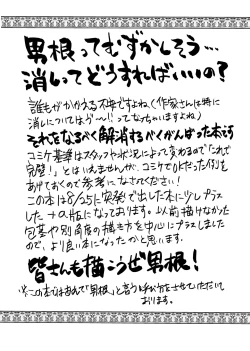 男根ってむずかしそう…
消しってどうすればいいの?
誰もがかかえる不安ですよね(作家さんは特に
消しについてはう〜〜!!ってなっちゃいますよね)
それをなるべく解消するべくがんばった本です
コミケ基準はスタッフや状況によって変わるので「これで
完璧!」とはいえませんが、コミケでOKだった例を
あげておくので参考になさってください!
この本は8/25に突発で出した本に少しプラス
した+α版になっております。以前描けなかった
包茎や別角度の描き方を中心にプラスしました
ので、より良い本になったかと思います。
皆さんも描こうぜ男根!
※この本ではあえて「男根」と言う呼び方をさせていただいて
おります。